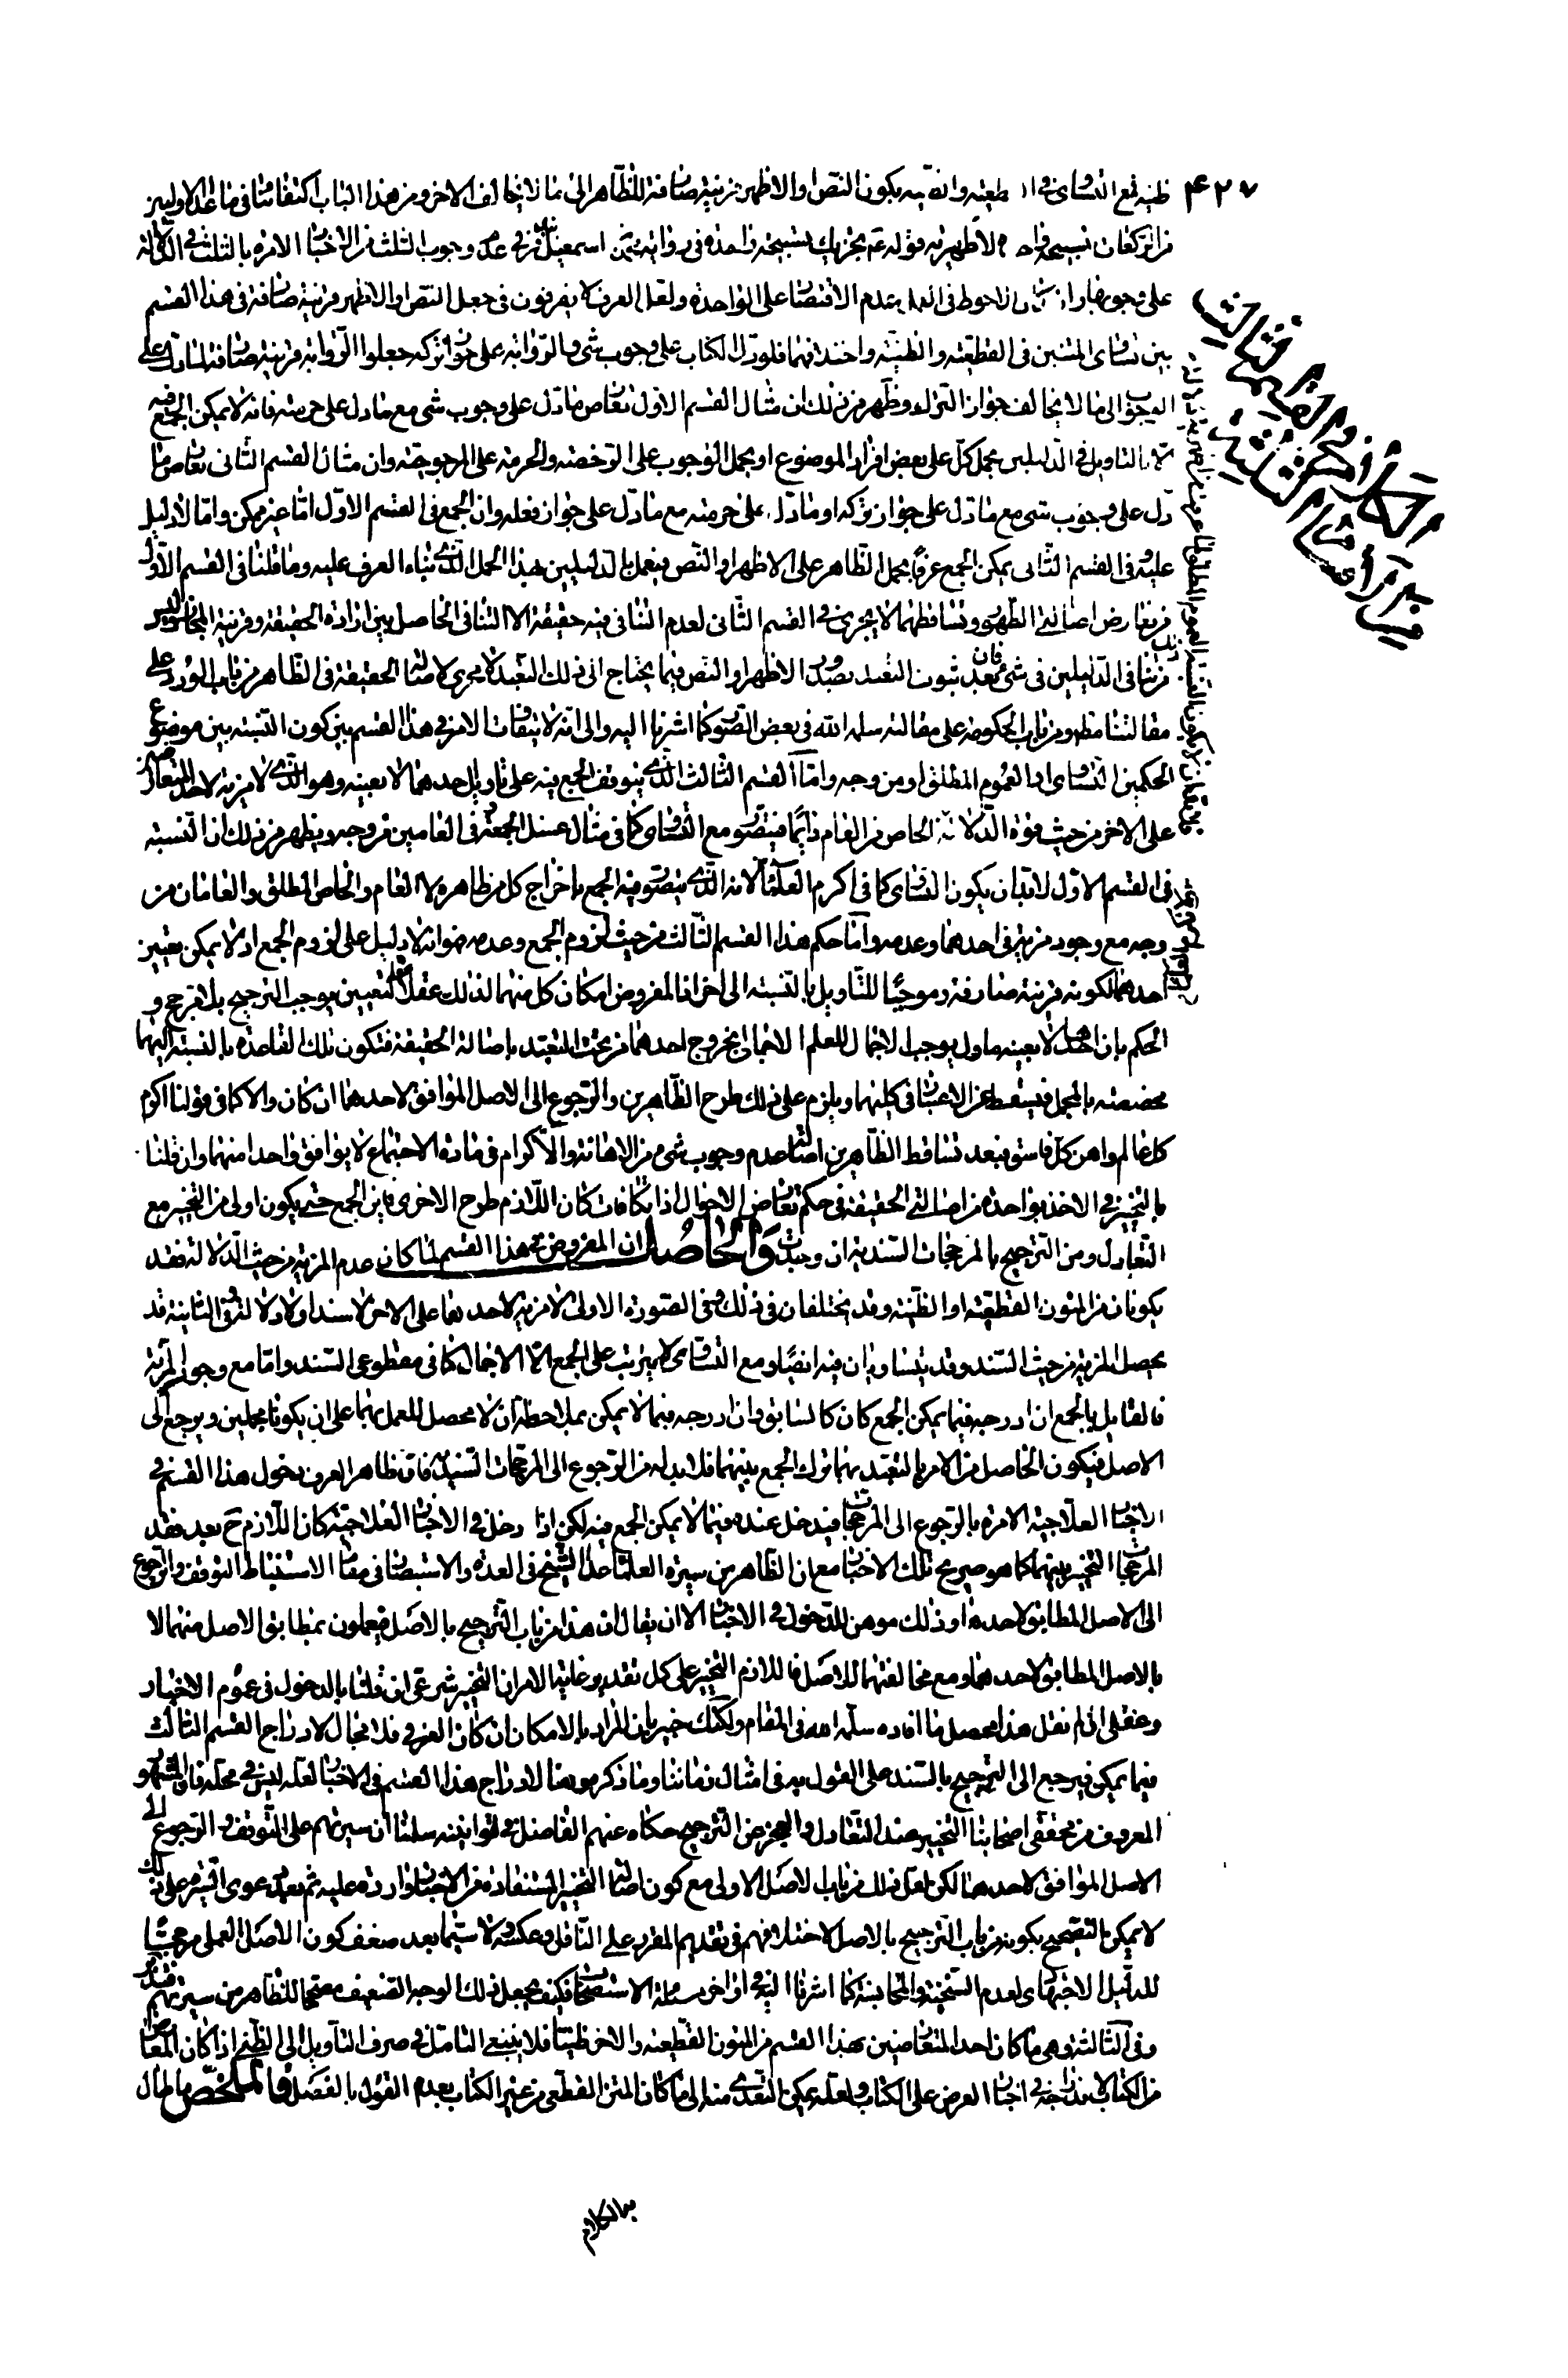 ۴۲۷
ظنيه فمع التساوي في القطعيه والظنيه يكون النص او الاظهر قرينة صارفة للظاهر الى ما لا يخالف الاخر ومن هذا الباب اكتفائنا في ما عدا الاوليين
من الركعات بتسبيحة واحدة لاظهرية قوله ع يجزيك تسبيحة واحدة في رواية محمد بن اسمعيل في عدم وجوب الثلث من الاخبار الامرة بالتثليث في الدلالة
على وجوبها وان كان الاحوط في العمل عدم الاقتصار على الواحدة ولعل العرف لا يفرقون في جعل النص او الاظهر قرينة صارفة في هذا القسم
بين تساوي المتنين في القطعية والظنية واختلافهما فلو دل الكتاب على وجوب شئ والرواية على جواز تركه جعلوا الرواية قرينة صارفة لما دل على
الوجوب الى ما لا يخالف جواز الترك وظهر من ذلك ان مثال القسم الاول تعارض ما دل على وجوب شئ مع ما دل على حرمته فانه لا يمكن الجمع فيه
الا بالتاويل في الدليلين بحمل كل على بعض افراد الموضوع او بحمل الوجوب على الرخصة والحرمة على المرجوحية وان مثال القسم الثاني تعارض ما
دل على وجوب شئ مع ما دل على جواز تركه او ما دل على حرمته مع ما دل على جواز فعله وان الجمع في القسم الاول اما غير ممكن واما لا دليل
عليه وفي القسم الثاني يمكن الجمع عرفا بحمل الظاهر على الاظهر او النص فيعمل بالدليلين هذا الحمل الذي بناء العرف عليه وما قلنا في القسم الاول
من تعارض اصالتي الظهور وتساقطهما لا يجري في القسم الثاني لعدم التنافي فيه حقيقة الا التنافي الحاصل بين ارادة الحقيقة وقرينة المجاز وليس
ذلك من تنافي الدليلين في شئ فان بعد ثبوت التعبد بصدور الاظهر او النص فيما يحتاج الى ذلك التعبد لا مجرى لاصالة الحقيقة في الظاهر من باب الورود على
مقالتنا مطلقا ومن باب الحكومة على مقالته سلمه الله في بعض الصور كما اشرنا اليه والى انه لا يتفاوت الامر في هذا القسم بين كون النسبة بين موضوع
الحكمين التساوي او العموم المطلق او من وجه واما القسم الثالث الذي يتوقف الجمع فيه على تاويل احدهما لا بعينه وهو الذي لا مزية لاحد المتعارضين
على الاخر من حيث قوة الدلالة الخاص من العام دائما فيتصور مع التساوي كما في مثال غسل الجمعة وفي العامين من وجه ويظهر من ذلك ان النسبة
في القسم الاول لابد ان يكون التساوي كما في اكرم العلماء لانه الذي يتصور فيه الجمع باخراج كل من ظاهره لا العام والخاص المطلق والعامان من
وجه مع وجود مزية في احدهما وعدمه واما حكم هذا القسم الثالث من حيث لزوم الجمع وعدمه فهو انه لا دليل على لزوم الجمع اذ لا يمكن تعيين
احدهما لكونه قرينة صارفة وموجبا للتاويل بالنسبة الى اخر اذ المفروض امكان كل منهما لذلك عقلا فالتعيين يوجب الترجيح بلا مرجح و
الحكم بان احدهما لا بعينه ماول يوجب الاجمال للعلم الاجمالي بخروج احدهما من تحت التعبد باصالة الحقيقة فتكون تلك القاعدة بالنسبة اليهما
مخصصة بالمجمل فيسقط عن الاعتبار في كليهما ويلزم على ذلك طرح الظاهرين والرجوع الى الاصل الموافق لاحدهما ان كان والا كما في قولنا اكرم
كل عالم واهن كل فاسق فبعد تساقط الظاهرين اصالة عدم وجوب شئ من الاهانة والاكرام في مادة الاجتماع لا يوافق واحدا منهما وان قلنا
بالتخيير في الاخذ بواحدة من اصالتي الحقيقة في حكم تعارض الاحوال اذا تكافات كان اللازم طرح الاخرى فاين الجمع حتى يكون اولى من التخيير مع
التعادل ومن الترجيح بالمرجحات السندية ان وجدت والحاصل ان المفروض في هذا القسم لما كان عدم المزية من حيث الدلالة فقد
يكونان من المتون القطعية او الظنية وقد يختلفان في ذلك وفي الصورة الاولى لا مزية لاحدهما على الاخر لا سندا ولا دلالة وفي الثانية قد
يحصل المزية من حيث السند وقد يتساويان فيه ايضا ومع التساوي لا يترتب على الجمع الا الاجمال كما في مقطوعي السند واما مع وجود المزية
فالقائل بالجمع ان ادرجه فيما يمكن الجمع كان كالسابق وان ادرجه فيما لا يمكن بملاحظة ان لا محصل للعمل بهما على ان يكونا مجملين ويرجع الى
الاصل فيكون الحاصل من الامر بالتعبد بهما ترك الجمع بينهما فلا بد له من الرجوع الى المرجحات السندية فان ظاهر العرف دخول هذا القسم في
الاخبار العلاجية الامرة بالرجوع الى المرجحات فيدخل عنده فيما لا يمكن الجمع فيه لكن اذا دخل في الاخبار العلاجية كان اللازم ح بعد فقد
المرجحات التخيير بينهما كما هو صريح تلك الاخبار مع ان الظاهر من سيرة العلماء عدا الشيخ في العدة والاستبصار في مقام الاستنباط التوقف والرجوع
الى الاصل المطابق لاحدهما وذلك موهن للدخول في الاخبار الا ان يقال ان هذا من باب الترجيح بالاصل فيعملون بمطابق الاصل منهما لا
بالاصل المطابق لاحدهما ومع مخالفتهما للاصل فاللازم التخيير على كل تقدير وغاية الامر ان التخيير شرعي ان قلنا بالدخول في عموم الاخبار
وعقلي ان لم نقل هذا محصل ما افاده سلمه الله في المقام ولكنك خبير بان المراد بالامكان ان كان العرفي فلا مجال لادراج القسم الثالث
فيما يمكن فيرجع الى الترجيح بالسند على القول به في امثال زماننا وما ذكر موهنا لادراج هذا القسم في الاخبار لعله ليس في محله فان المشهور
المعروف من محققي اصحابنا التخيير عند التعادل والعجز عن الترجيح حكاه عنهم الفاضل في قوانينه سلمنا ان سيرتهم على التوقف والرجوع الى
الاصل الموافق لاحدهما لكن لعل ذلك من باب الاصل الاولي مع كون اصالة التخيير المستفادة من الاخبار واردة عليه ثم بعد دعوى السيرة على ذلك
لا يمكن التصحيح بكونه من باب الترجيح بالاصل لاختلافهم في تقديم المقرر على الناقل وعكسه ولا سيما بعد ضعف كون الاصل العملي مرجحا
للدليل الاجتهادي لعدم السنخية والمجانسة كما اشرنا اليه في اواخر مسئلة الاستصحاب فكيف يجعل ذلك الوجه الضعيف مصححا للظاهر من سيرتهم فتدبر
وفي الثالثة وهي ما كان احد المتعارضين بهذا القسم من المتون القطعية والاخر ظنيا فلا ينبغي التامل في صرف التاويل الى الظني اذا كان المعارض
من الكتاب لاندراجه في اخبار العرض على الكتاب ولعله يمكن التعدي منه الى ما كان المتن القطعي من غير الكتاب بعدم القول بالفصل فالملخص ما طال
به الكلام
الكلام في القسم الثالث
من اقسام الثالثة